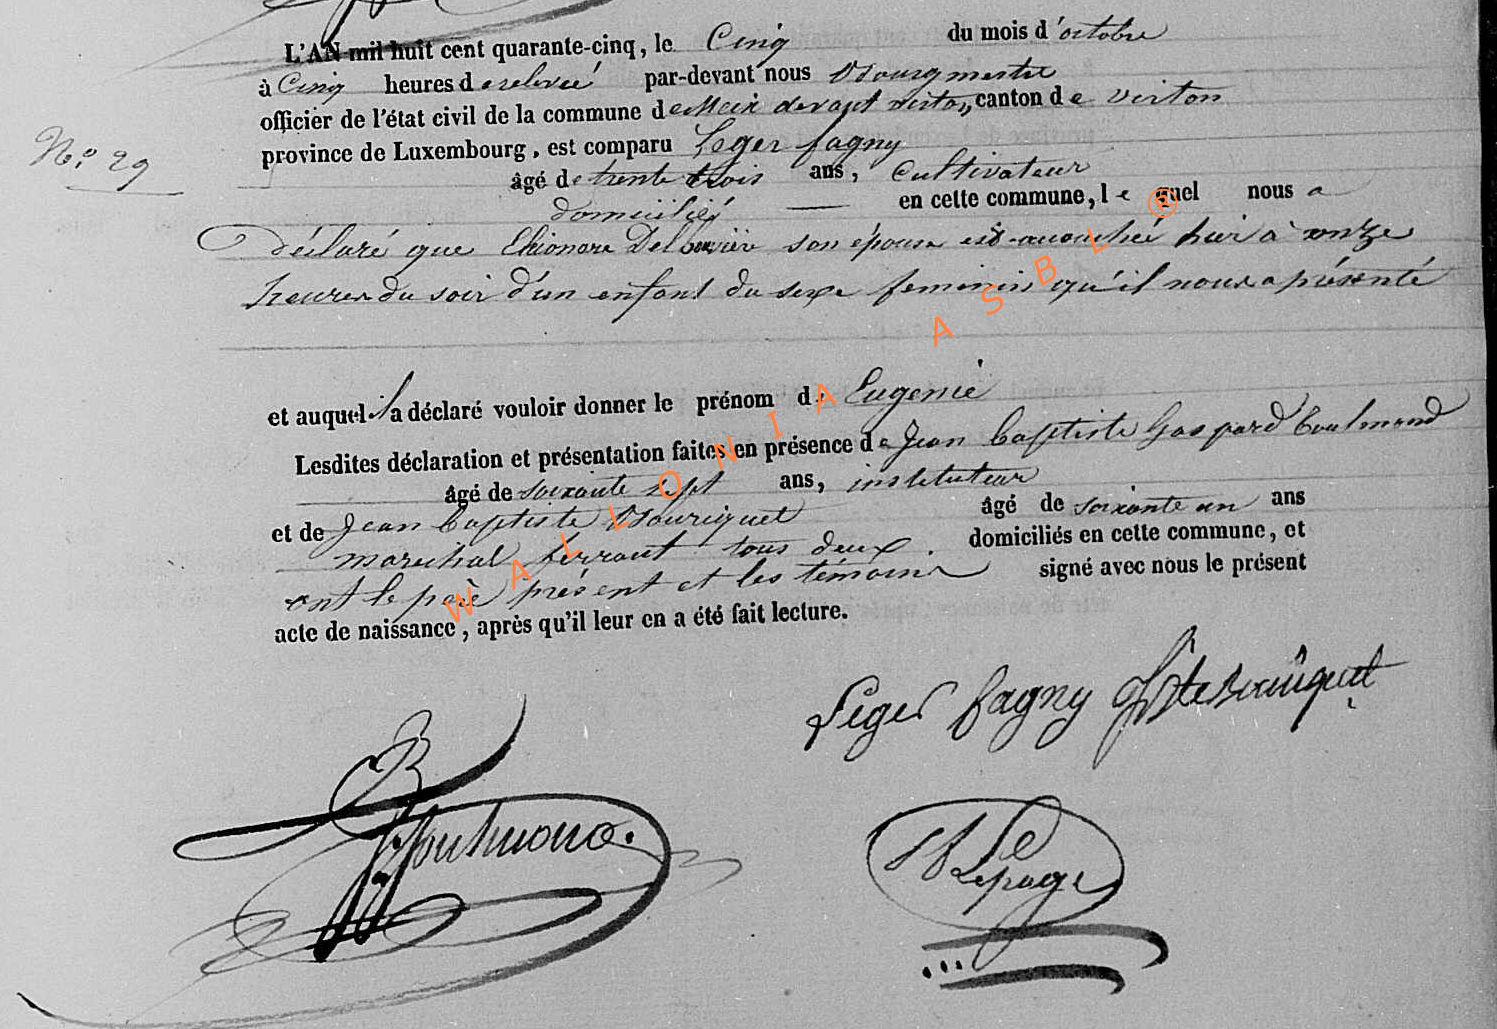 L'AN mil huit cent quarante-cinq, le Cinq du mois d'octobre
à Cinq heures de relevée par-devant nous Bourgmestre
officier de l'état civil de la commune de Meix devant virton, canton de virton
N.o 29
province de Luxembourg, est comparu Leger fagny
âgé de trente trois ans, cultivateur
domicilié en cette commune, lequel nous a
déclaré que Eléonore son épouse est accouchée hier à onze
heures du soir d'un enfant du sexe feminin qu'il nous a présenté
et auquel il a déclaré vouloir donner le prénom de Eugenie
Lesdites déclaration et présentation faites en présence de Jean baptiste Gaspard Coulmond
âgé de soixante sept ans, instituteur
et de Jean baptiste Bouriquet âgé de soixante un ans
marechal ferrant tous deux. domiciliés en cette commune, et
ont le père présent et les témoins signé avec nous le présent
acte de naissance, après qu'il leur en a été fait lecture.
Leger fagny Bouriquet
Lepage
WALLONIA ASBL ®